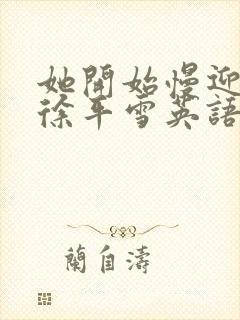 她開始慢迎
徐年雪英語
蘭自濤